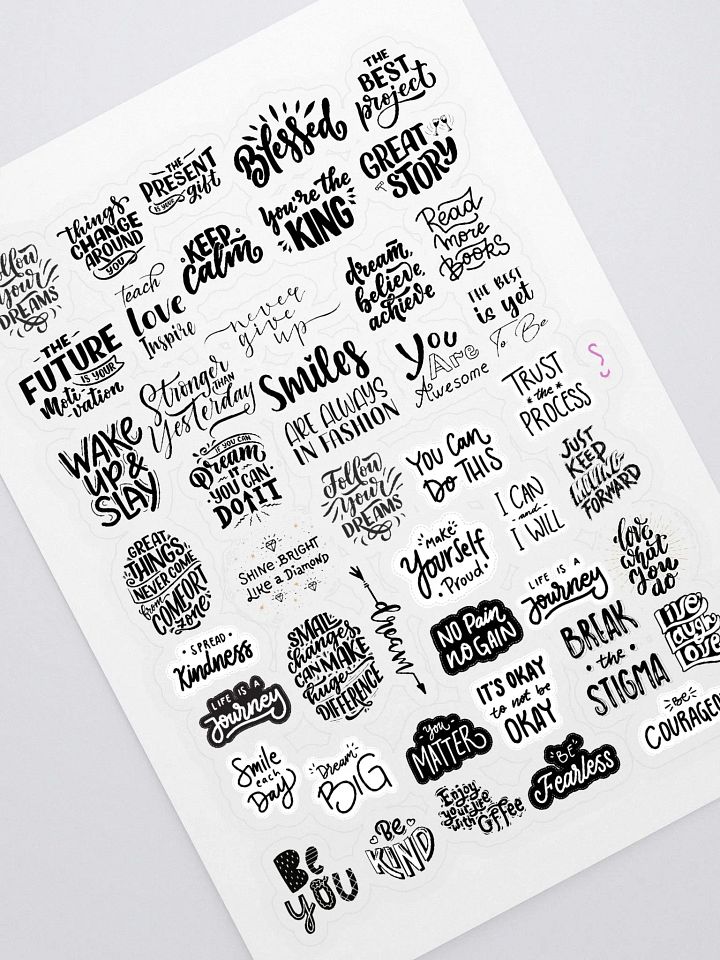 THE
BEST
project
Blessed
GREAT
STORY
THE
PRESENT
is your
gift
you're the
KING
things
CHANGE
AROUND
YOU
KEEP
Calm
Read
More
Books
follow
your
DREAMS
teach
love
Inspire
never
give
up
dream,
believe,
achieve
THE BEST
is yet
To Be
THE
FUTURE
IS YOUR
Moti-
vation
Stronger
THAN
Yesterday
Smiles
ARE ALWAYS
IN FASHION
You
Are
Awesome
TRUST
the
PROCESS
WAKE
UP &
SLAY
IF YOU CAN
Dream
IT
YOU CAN
DO IT
Follow
your
DREAMS
YOU CAN
Do THIS
JUST
KEEP
FORWARD
I CAN
and
I WILL
GREAT
THINGS
NEVER COME
from
COMFORT
zone
SHINE BRIGHT
LIKE a DIAMOND
Make
Yourself
Proud
love
what
you
do
LIFE IS A
Journey
dream
SMALL
changes
CAN MAKE
huge
DIFFERENCE
NO Pain
NO GAIN
BREAK
the
STIGMA
live
laugh
love
SPREAD
Kindness
LIFE IS A
Journey
IT'S OKAY
to not be
OKAY
Be
COURAGEOU
Smile
each
Day
Dream
BIG
You
MATTER
BE
Fearless
Enjoy
your life
with
Coffee
Be
YOU
Be
KIND